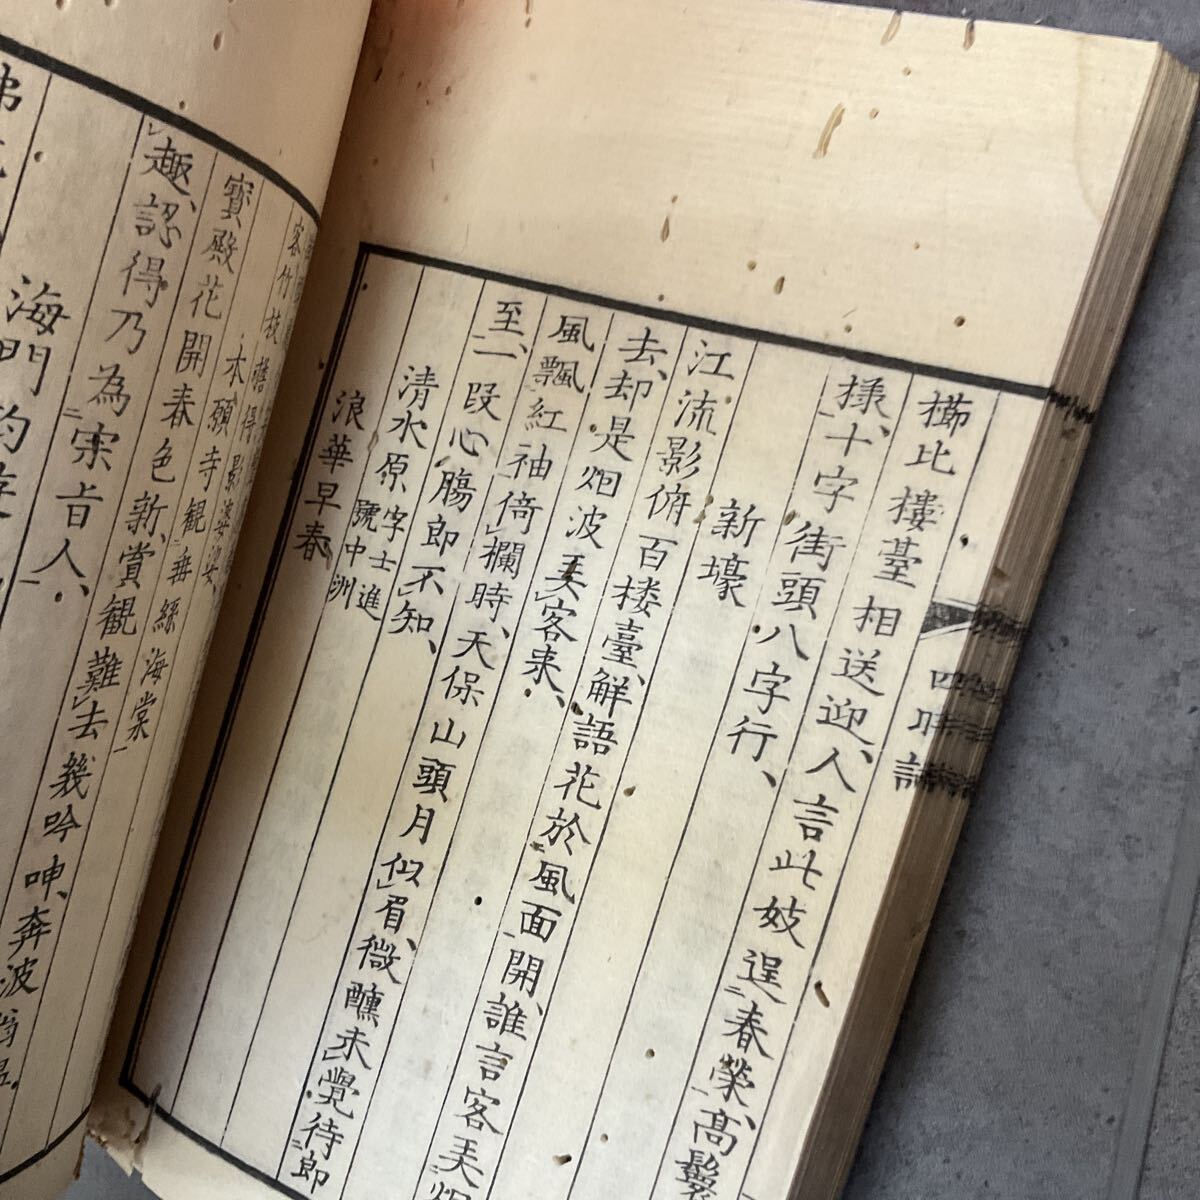 櫛比樓臺相送迎、人言此妓逞春榮、高鬟
揉、十字街頭八字行、
新壕
江流影俯百楼臺、解語花於風面開、誰言客美烟
去、却是烟波美客来、
風飄紅袖倚欄時、天保山頭月似眉、微醺未覺待郎
至、一段心腸郎不知、
清水原 字士進 號中洲
浪華早春
四時詩
本願寺観垂絲海棠
寳殿花開春色新、賞観難去幾吟呻、奔波
趣、認得乃為宗旨人、
海門